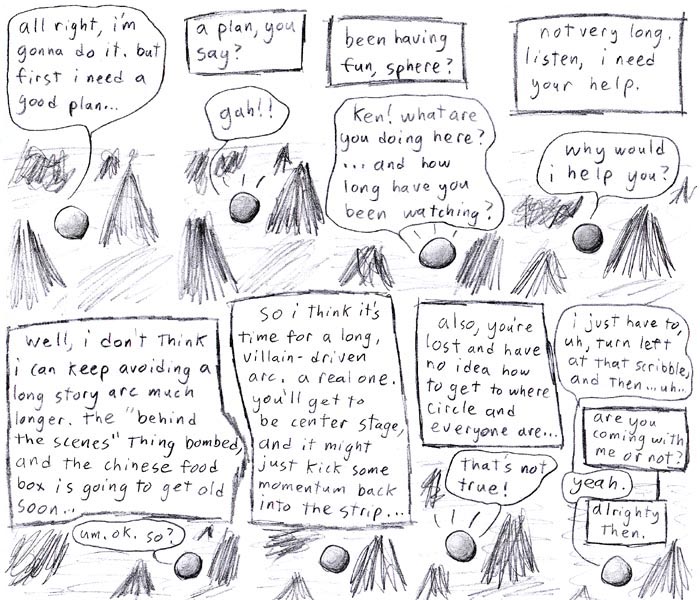 all right, i'm
gonna do it. but
first i need a
good plan...
a plan, you
say?
gah!!
been having
fun, sphere?
Ken! what are
you doing here?
...and how
long have you
been watching?
not very long.
listen, i need
your help.
why would
i help you?
well, i don't think
i can keep avoiding a
long story arc much
longer. the "behind
the scenes" thing bombed,
and the chinese food
box is going to get old
soon...
um. ok. so?
so i think it's
time for a long,
villain-driven
arc. a real one.
you'll get to
be center stage,
and it might
just kick some
momentum back
into the strip...
also, you're
lost and have
no idea how
to get to where
circle and
everyone are...
that's not
true!
i just have to,
uh, turn left
at that scribble,
and then...uh...
are you
coming with
me or not?
yeah.
alrighty
then.